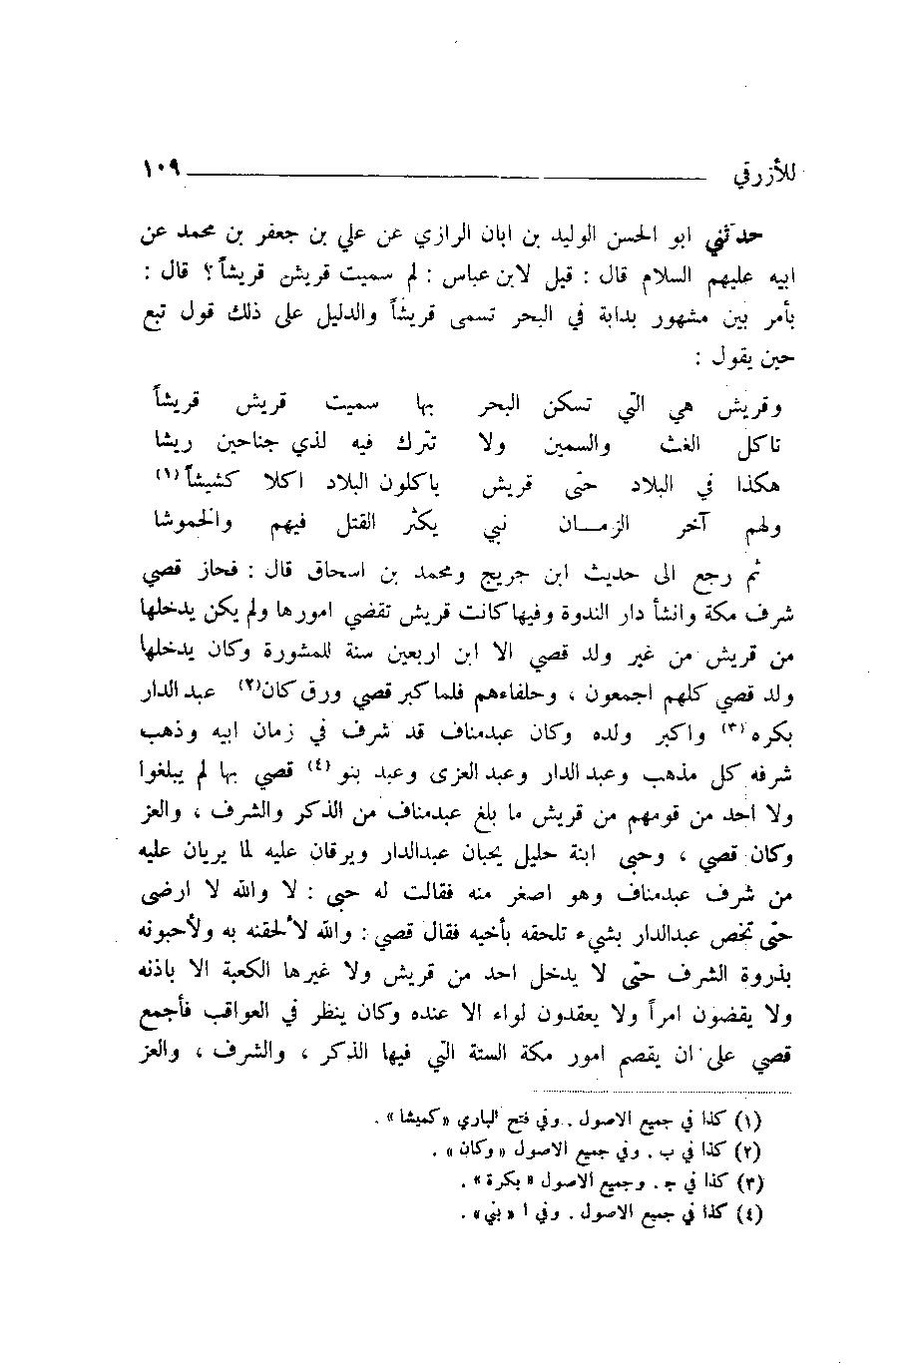 للأزرقي ١٠٩
حدثني ابو الحسن الوليد بن ابان الرازي عن علي بن جعفر بن محمد عن
ابيه عليهم السلام قال : قيل لابن عباس : لم سميت قريش قريشاً ؟ قال :
بأمر بين مشهور بدابة في البحر تسمى قريشاً والدليل على ذلك قول تبع
حين يقول :
وقريش هي التي تسكن البحر بها سميت قريش قريشاً
تاكل الغث والسمين ولا تترك فيه لذي جناحين ريشا
هكذا في البلاد حتى قريش ياكلون البلاد اكلا كشيشاً (١)
ولهم آخر الزمـــان نبي يكثر القتل فيهم والخموشا
ثم رجع الى حديث ابن جريج ومحمد بن اسحاق قال : فحاز قصي
شرف مكة وانشأ دار الندوة وفيها كانت قريش تقضي امورها ولم يكن يدخلها
من قريش من غير ولد قصي الا ابن اربعين سنة للمشورة وكان يدخلها
ولد قصي كلهم اجمعون ، وحلفاءهم فلما كبر قصي ورق كان (٢) عبد الدار
بكره (٣) واكبر ولده وكان عبدمناف قد شرف في زمان ابيه وذهب
شرفه كل مذهب وعبد الدار وعبد العزى وعبد بنو (٤) قصي بها لم يبلغوا
ولا احد من قومهم من قريش ما بلغ عبدمناف من الذكر والشرف ، والعز
وكان قصي ، وحبى ابنة حليل يحبان عبدالدار ويرقان عليه لما يريان عليه
من شرف عبدمناف وهو اصغر منه فقالت له حبى : لا والله لا ارضى
حتى تخص عبدالدار بشيء تلحقه بأخيه فقال قصي : والله لألحقنه به ولأحبونه
بذروة الشرف حتى لا يدخل احد من قريش ولا غيرها الكعبة الا باذنه
ولا يقضون امراً ولا يعقدون لواء الا عنده وكان ينظر في العواقب فأجمع
قصي على ان يقصم امور مكة الستة التي فيها الذكر ، والشرف ، والعز
(١) كذا في جميع الاصول . وفي فتح الباري «كميشا» .
(٢) كذا في ب . وفي جميع الاصول «وكان» .
(٣) كذا في ج . وجميع الاصول «بكرة» .
(٤) كذا في جميع الاصول . وفي ا «بني» .